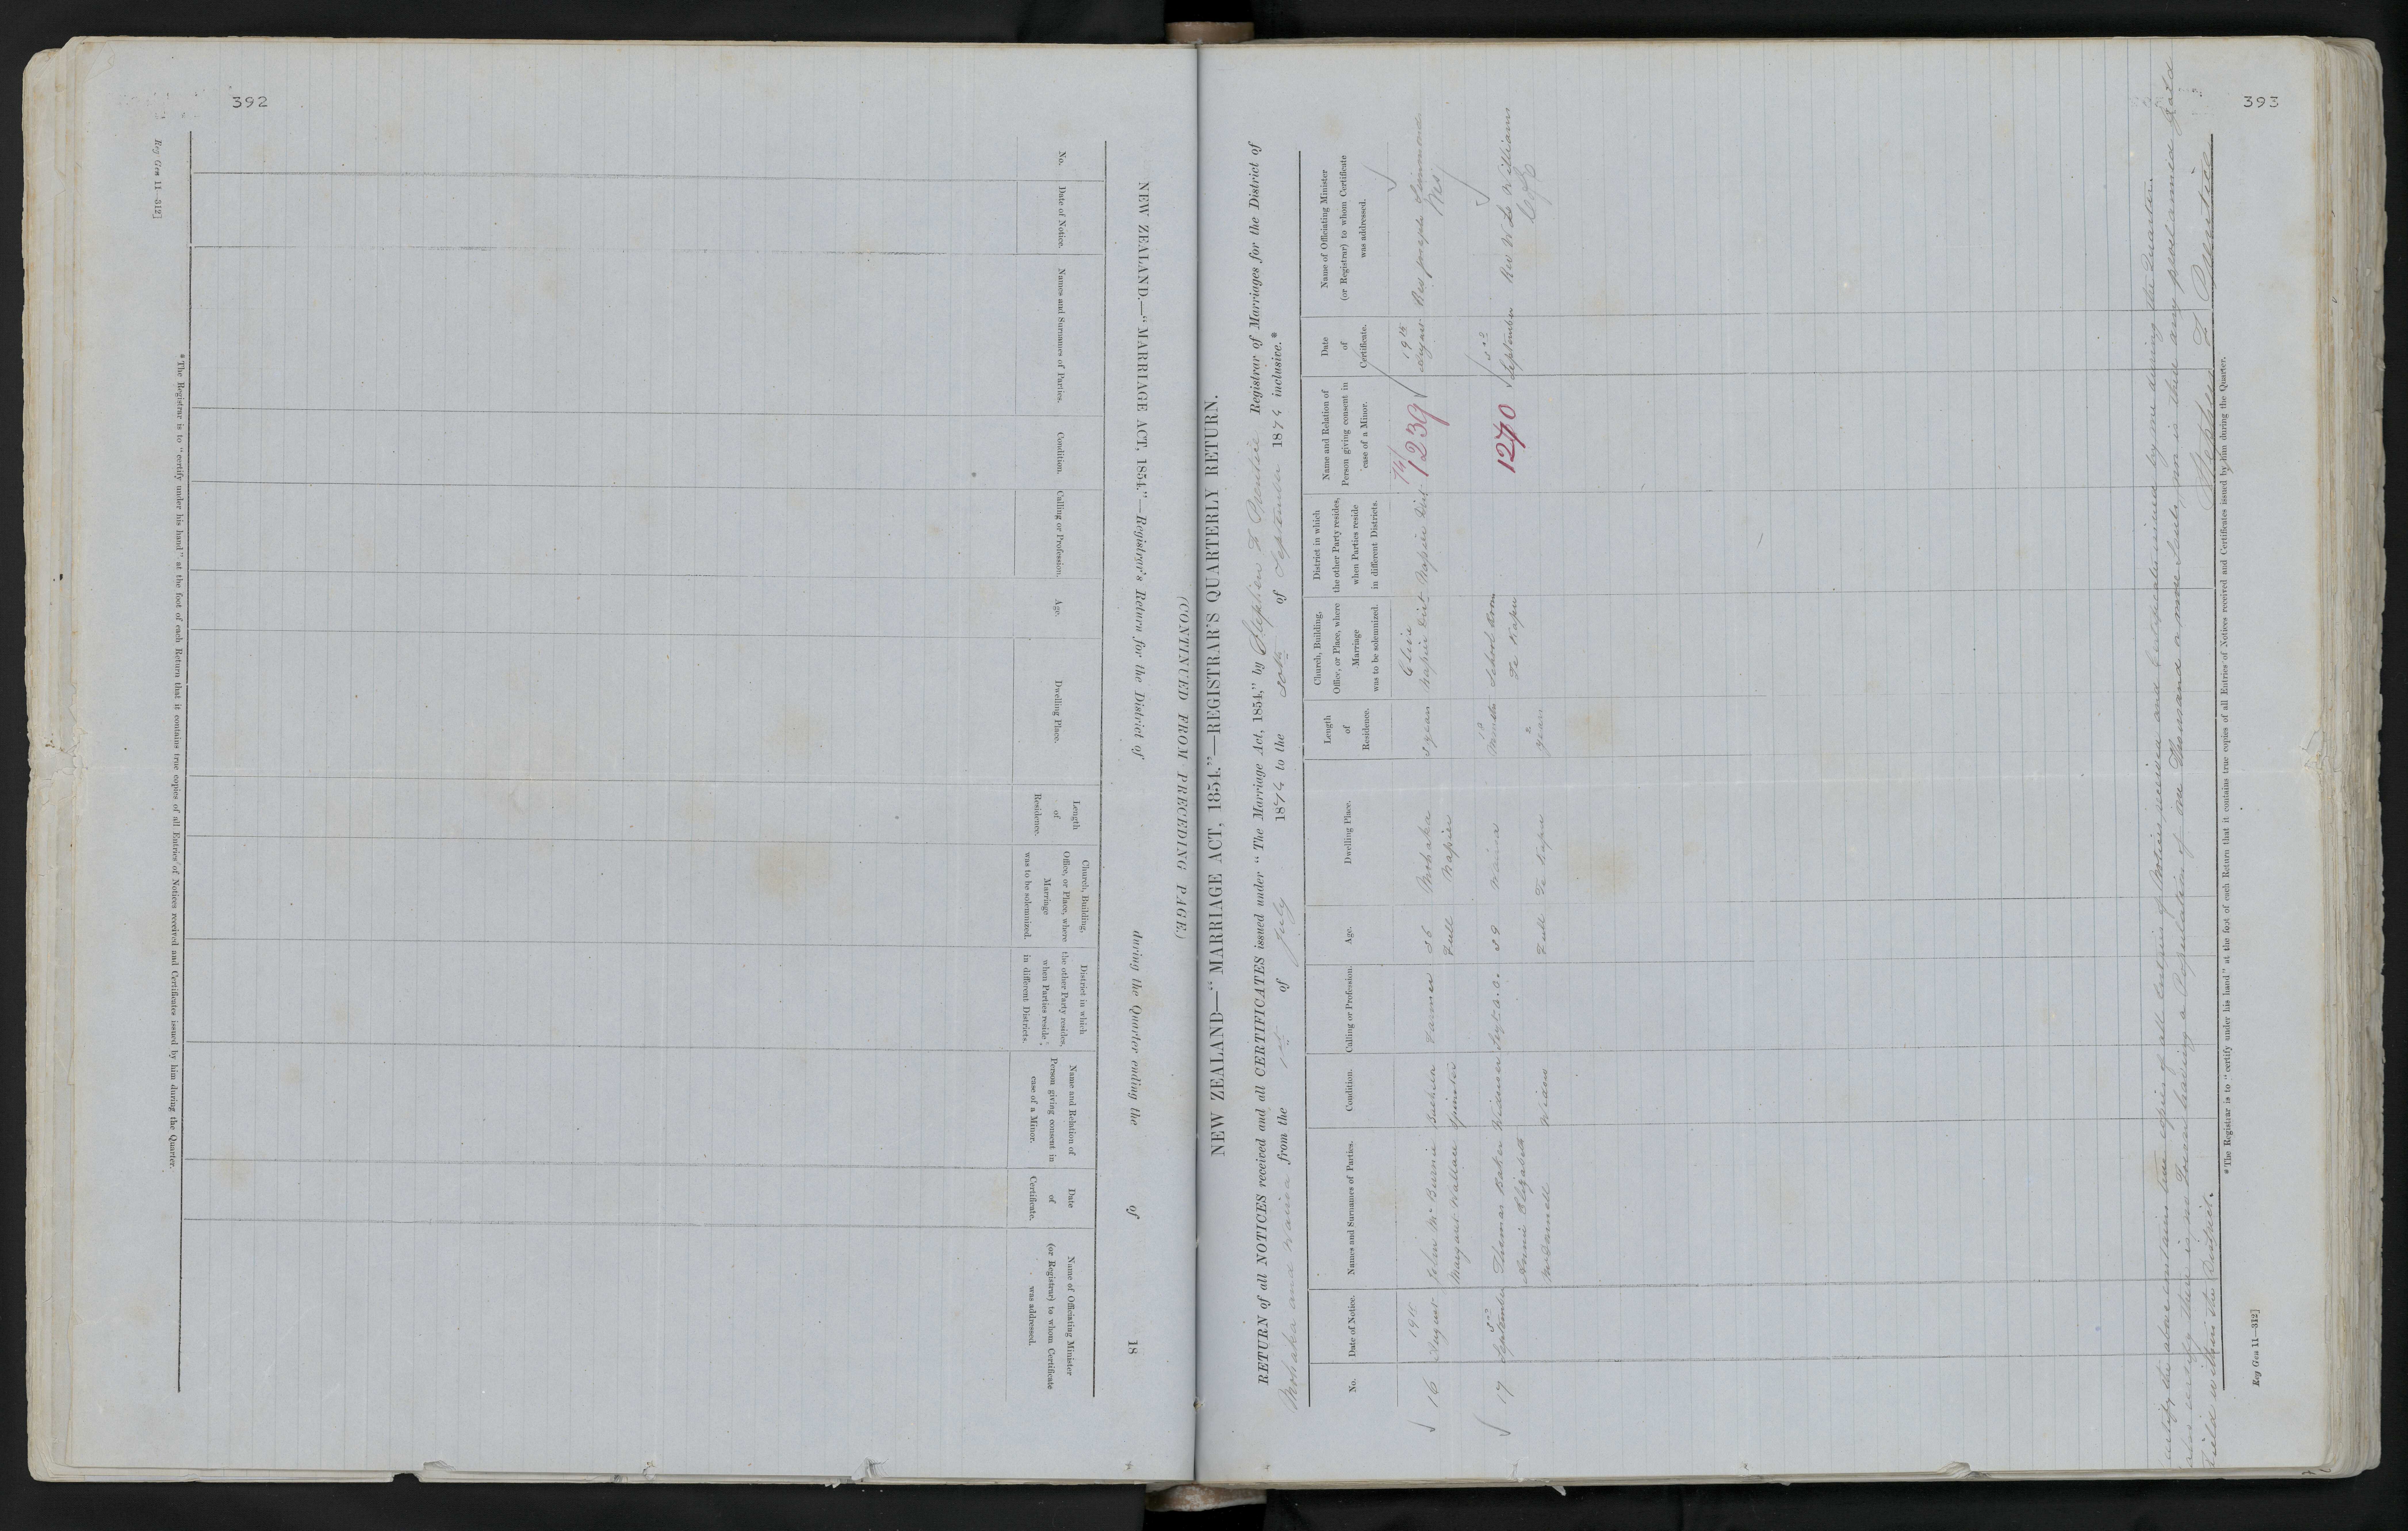 392
Reg Gen 11—312]
NEW ZEALAND.—"MARRIAGE ACT, 1854."—Registrar's Return for the District of during the Quarter ending the of 18
(CONTINUED FROM PRECEDING PAGE.)
No.
Date of Notice.
Names and Surnames of Parties.
Condition.
Calling or Profession.
Age.
Dwelling Place.
Length
of
Residence.
Church, Building,
Office, or Place, where
Marriage
was to be solemnized.
District in which
the other Party resides,
when Parties reside
in different Districts.
Name and Relation of
Person giving consent in
case of a Minor.
Date
of
Certificate.
Name of Officiating Minister
(or Registrar) to whom Certificate
was addressed.
*The Registrar is to "certify under his hand" at the foot of each Return that it contains true copies of all Entries of Notices received and Certificates issued by him during the Quarter.
393
NEW ZEALAND—"MARRIAGE ACT, 1854."—REGISTRAR'S QUARTERLY RETURN.
RETURN of all NOTICES received and all CERTIFICATES issued under "The Marriage Act, 1854," by Stephen F Prentice Registrar of Marriages for the District of
Mohaka and Wairoa from the 1st of July 1874 to the 30th of September 1874 inclusive.*
No.
Date of Notice.
Names and Surnames of Parties.
Condition.
Calling or Profession.
Age.
Dwelling Place.
Length
of
Residence.
Church, Building,
Office, or Place, where
Marriage
was to be solemnized.
District in which
the other Party resides,
when Parties reside
in different Districts.
Name and Relation of
Person giving consent in
case of a Minor.
Date
of
Certificate.
Name of Officiating Minister
(or Registrar) to whom Certificate
was addressed.
16 19th August John McBurnie Bachelor Farmer 36 Mohaka 3 years Clive Napier Dist Napier Dist 74/1239 19th August Rev Joseph Simmonds
Margaret Wallace Spinster Full Napier Wes
17 September Thomas Baker Widower 39 Wairoa Months School Room 1270 September Rev W Williams
Annie Elizabeth Te Kapu C of E
Widow Full Te Kapu 2 years
certify the above contains true copies of all Entries of Notices received and Certificates issued by me during the Quarter.
also certify there is no Town having a Population of one Thousand or more Souls, nor is there any proclaimed Gold
Field within the District.
Stephen F Prentice
*The Registrar is to "certify under his hand" at the foot of each Return that it contains true copies of all Entries of Notices received and Certificates issued by him during the Quarter.
Reg Gen 11—312]